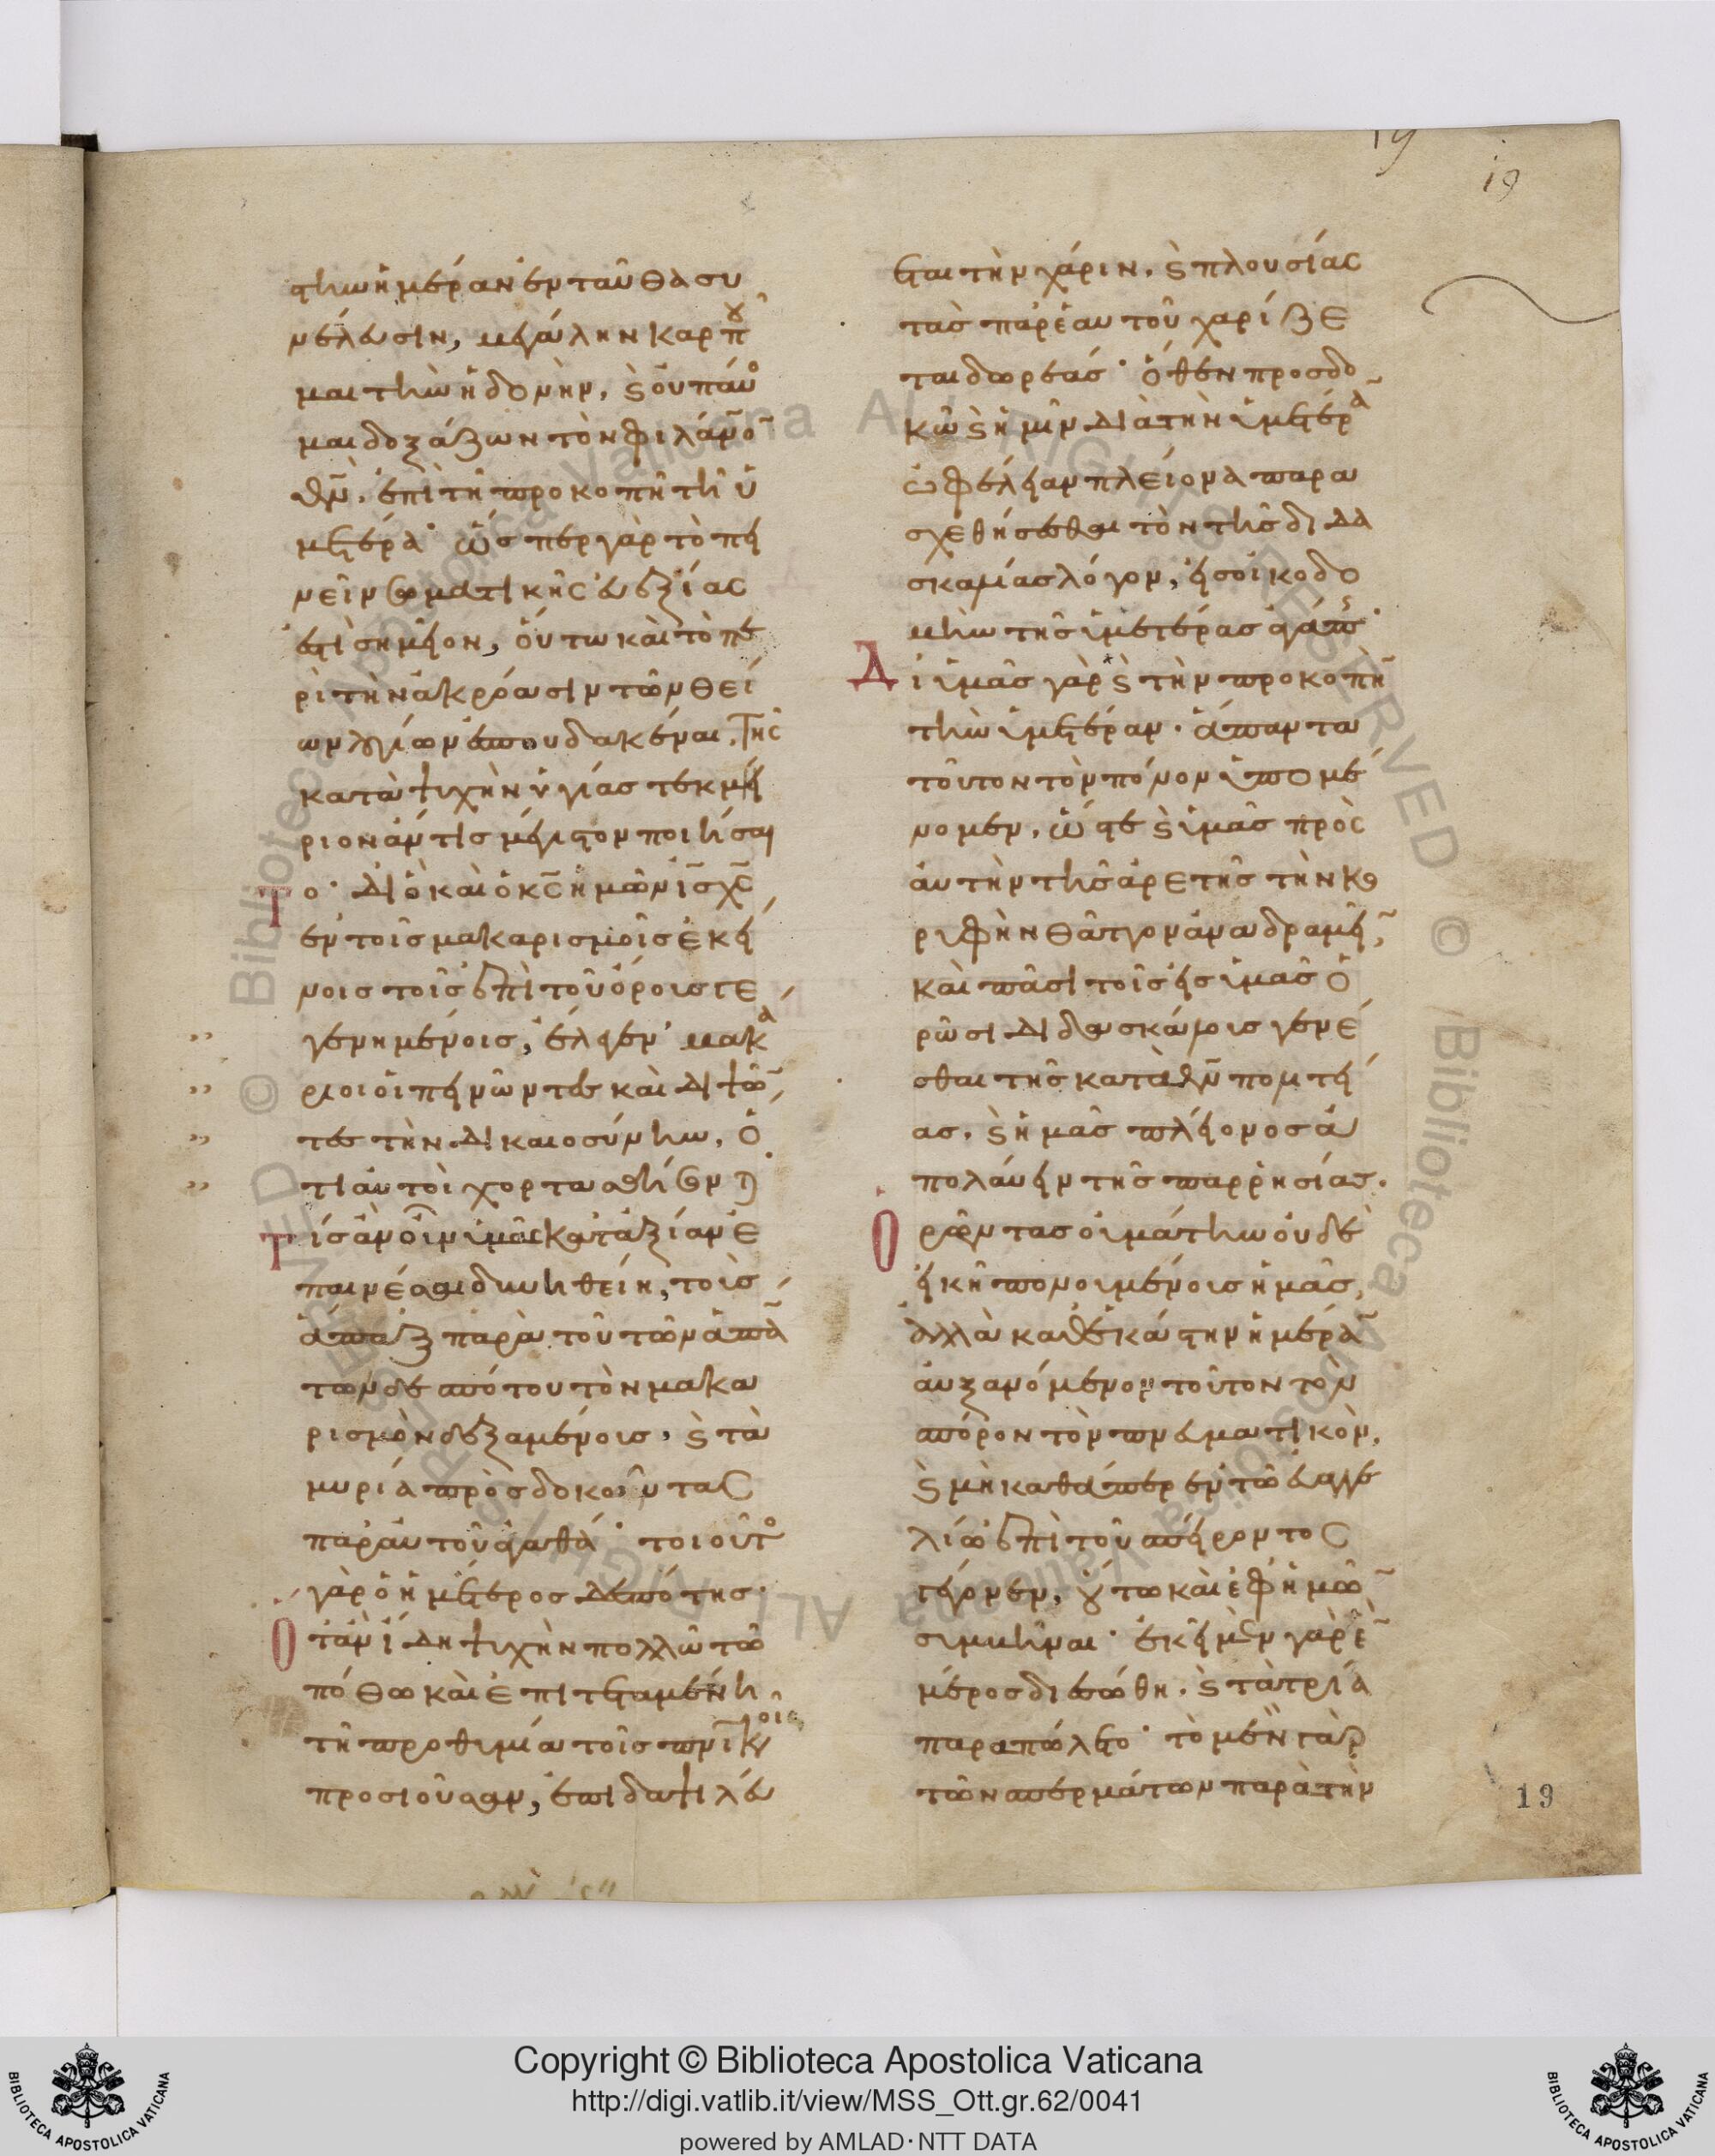 19
19
στην ἡμέραν ἐνταῦθα συ
νέλευσιν, μεγάλην καρπ
μαι τὴν ἡδονὴν, καὶ οὐ παύο
μαι δοξάζων τὸν φιλάνο
θν, ἐπὶ τῆ προκοπῆ τῆ ὑ
μετέρα· ὥσπερ γὰρ τὸ πει
νεῖν σωματικῆς εὐεξίας
ἐστὶ σημεῖον, οὕτω καὶ τὸ πε
ρὶ τὴν ἀκρόασιν τῶν θεί
ων λογίων ἐσπουδακέναι, τῆς
κατὰ ψυχὴν ὑγιείας τεκμή
ριον ἄν τις μέγιστον ποιήσαι
το· διὸ καὶ ὁ κς ἡμῶν ις χς
ἐν τοῖς μακαρισμοῖς ἐκεί
νοις τοῖς ἐπὶ τοῦ ὄρους γε
γενημένοις, ἔλεγεν· μακα
ριοι οἱ πεινῶντες καὶ διψῶ
τες τὴν δικαιοσύνην, ὅ
τι αὐτοὶ χορτασθήσονται·
τίς ἂν οὖν ὑμᾶς κατ' ἀξίαν ἐ
παινέσαι δυνηθείη, τοὺς
ἅπαξ παρὰ τοῦ τῶν ἁπά
των δεσπότου τὸν μακα
ρισμὸν δεξαμένους, καὶ τὰ
μυρία προσδοκοῦντας
παρ' αὐτοῦ ἀγαθά· τοιοῦτο
γὰρ ὁ ἡμέτερος δεσπότης·
ὅταν ἴδη ψυχὴν πολλῶ τῶ
πόθω καὶ ἐπιτεταμένη
τῆ προθυμία τοῖς πνικοῖς
προσιοῦσαν, ἐπιδαψιλεύ
εται τὴν χάριν, καὶ πλουσίας
τὰς παρ' ἑαυτοῦ χαρίζε
ται δωρεάς· ὅθεν προσδο
κῶ καὶ ἡμῖν διὰ τὴν ὑμετέρα
ὠφέλειαν πλείονα παρα
σχεθήσεσθαι τὸν τῆς διδα
σκαλίας λόγον, εἰς οἰκοδο
μὴν τῆς ὑμετέρας ἀγάπης·
Δι' ὑμᾶς γὰρ καὶ τὴν προκοπὴ
τὴν ὑμετέραν· ἅπαντα
τοῦτον τὸν πόνον ὑπομέ
νομεν, ὥστε καὶ ὑμᾶς πρὸς
αὐτὴν τῆς ἀρετῆς τὴν κο
ρυφὴν θᾶττον ἀναδραμεῖ,
καὶ πᾶσι τοῖς εἰς ὑμᾶς ὁ
ρῶσι διδασκάλοις γενέ
σθαι τῆς κατὰ θν πολιτεί
ας, καὶ ἡμᾶς πλείονος ἀ
πολαύειν τῆς παρρησίας·
Ὁρῶντας οἱ μάτην οὐδὲ
εἰκῆ πονουμένους ἡμᾶς,
ἀλλὰ καθ' ἑκάστην ἡμέρα
αὐξανόμενον τοῦτον τὸν
σπόρον τὸν πνευματικὸν,
καὶ μὴ καθάπερ ἐν τῶ εὐαγγε
λίω ἐπὶ τοῦ σπείροντος
γέγονεν, οὕτω καὶ ἐφ' ἡμῶ
συμβῆναι· ἐκεῖ μὲν γὰρ ἓ
μέρος διεσώθη, καὶ τὰ τρία
παραπώλετο· τὸ μὲν γὰρ
τῶν σπερμάτων παρὰ τὴν
19
Copyright © Biblioteca Apostolica Vaticana
http://digi.vatlib.it/view/MSS_Ott.gr.62/0041
powered by AMLAD·NTT DATA
BIBLIOTECA APOSTOLICA VATICANA
BIBLIOTECA APOSTOLICA VATICANA